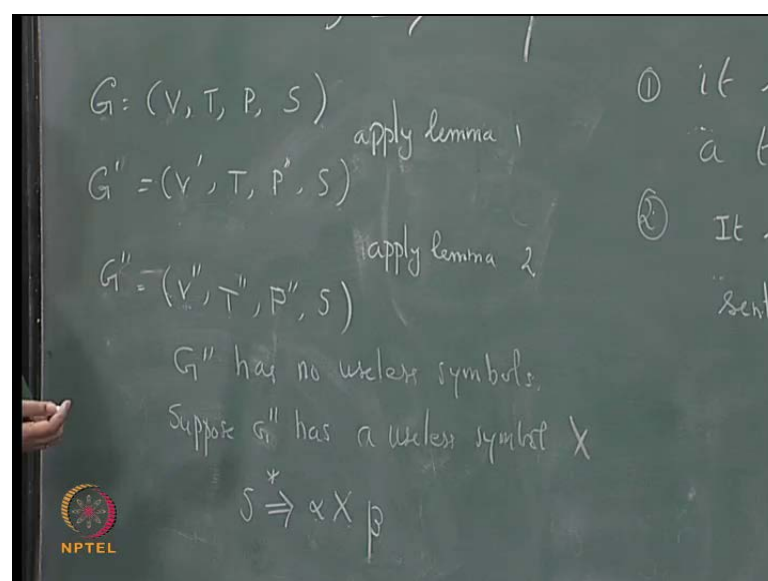 G = (V, T, P, S)
apply lemma 1
G'' = (V', T, P', S)
apply lemma 2
G'' = (V'', T'', P'', S)
G'' has no useless symbols.
Suppose G'' has a useless symbol X
S *⇒ αXβ
① it
a t
② It
sent
NPTEL